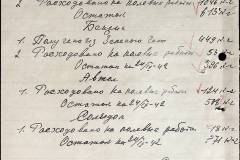 2 Расходовано на полевые работы 1046 кг
Остаток 613 кг
Бензин
1. Получено из Зеленого 449 кг
2 Расходовано на полевые работы 53 кг
Остаток на 24/IV-42 396 кг
Автол
1. Расходовано на полевые работы 121 кг
Остаток на 24/IV-42 кг
Солидол
1. Расходовано на полевые работы 18 кг
Остаток на 24/IV-42 271 кг